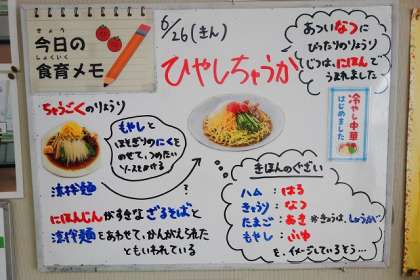 きょう
今日の
しょくいく
食育メモ
6/26(きん)
ひやしちゅうか
あついなつに
ぴったりのりょうり
じつは、にほんで
うまれました
冷やし中華
はじめました
ちゅうごくのりょうり
もやしと
ほそぎりのにくを
のせて、つめたい
ソースをかける
涼拌麺
?
にほんじんがすきなざるそばと
涼拌麺をあわせて、かんがえられた
ともいわれている
きほんのぐざい
ハム:はる
きゅうり:なつ
たまご:あき ※きょうは、しょうが
もやし:ふゆ
を、イメージしているそう…